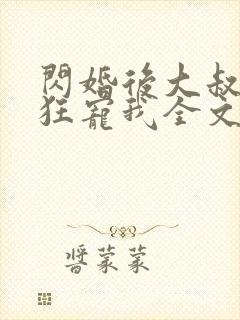 閃婚後大叔
狂寵我全文
醬蒙蒙